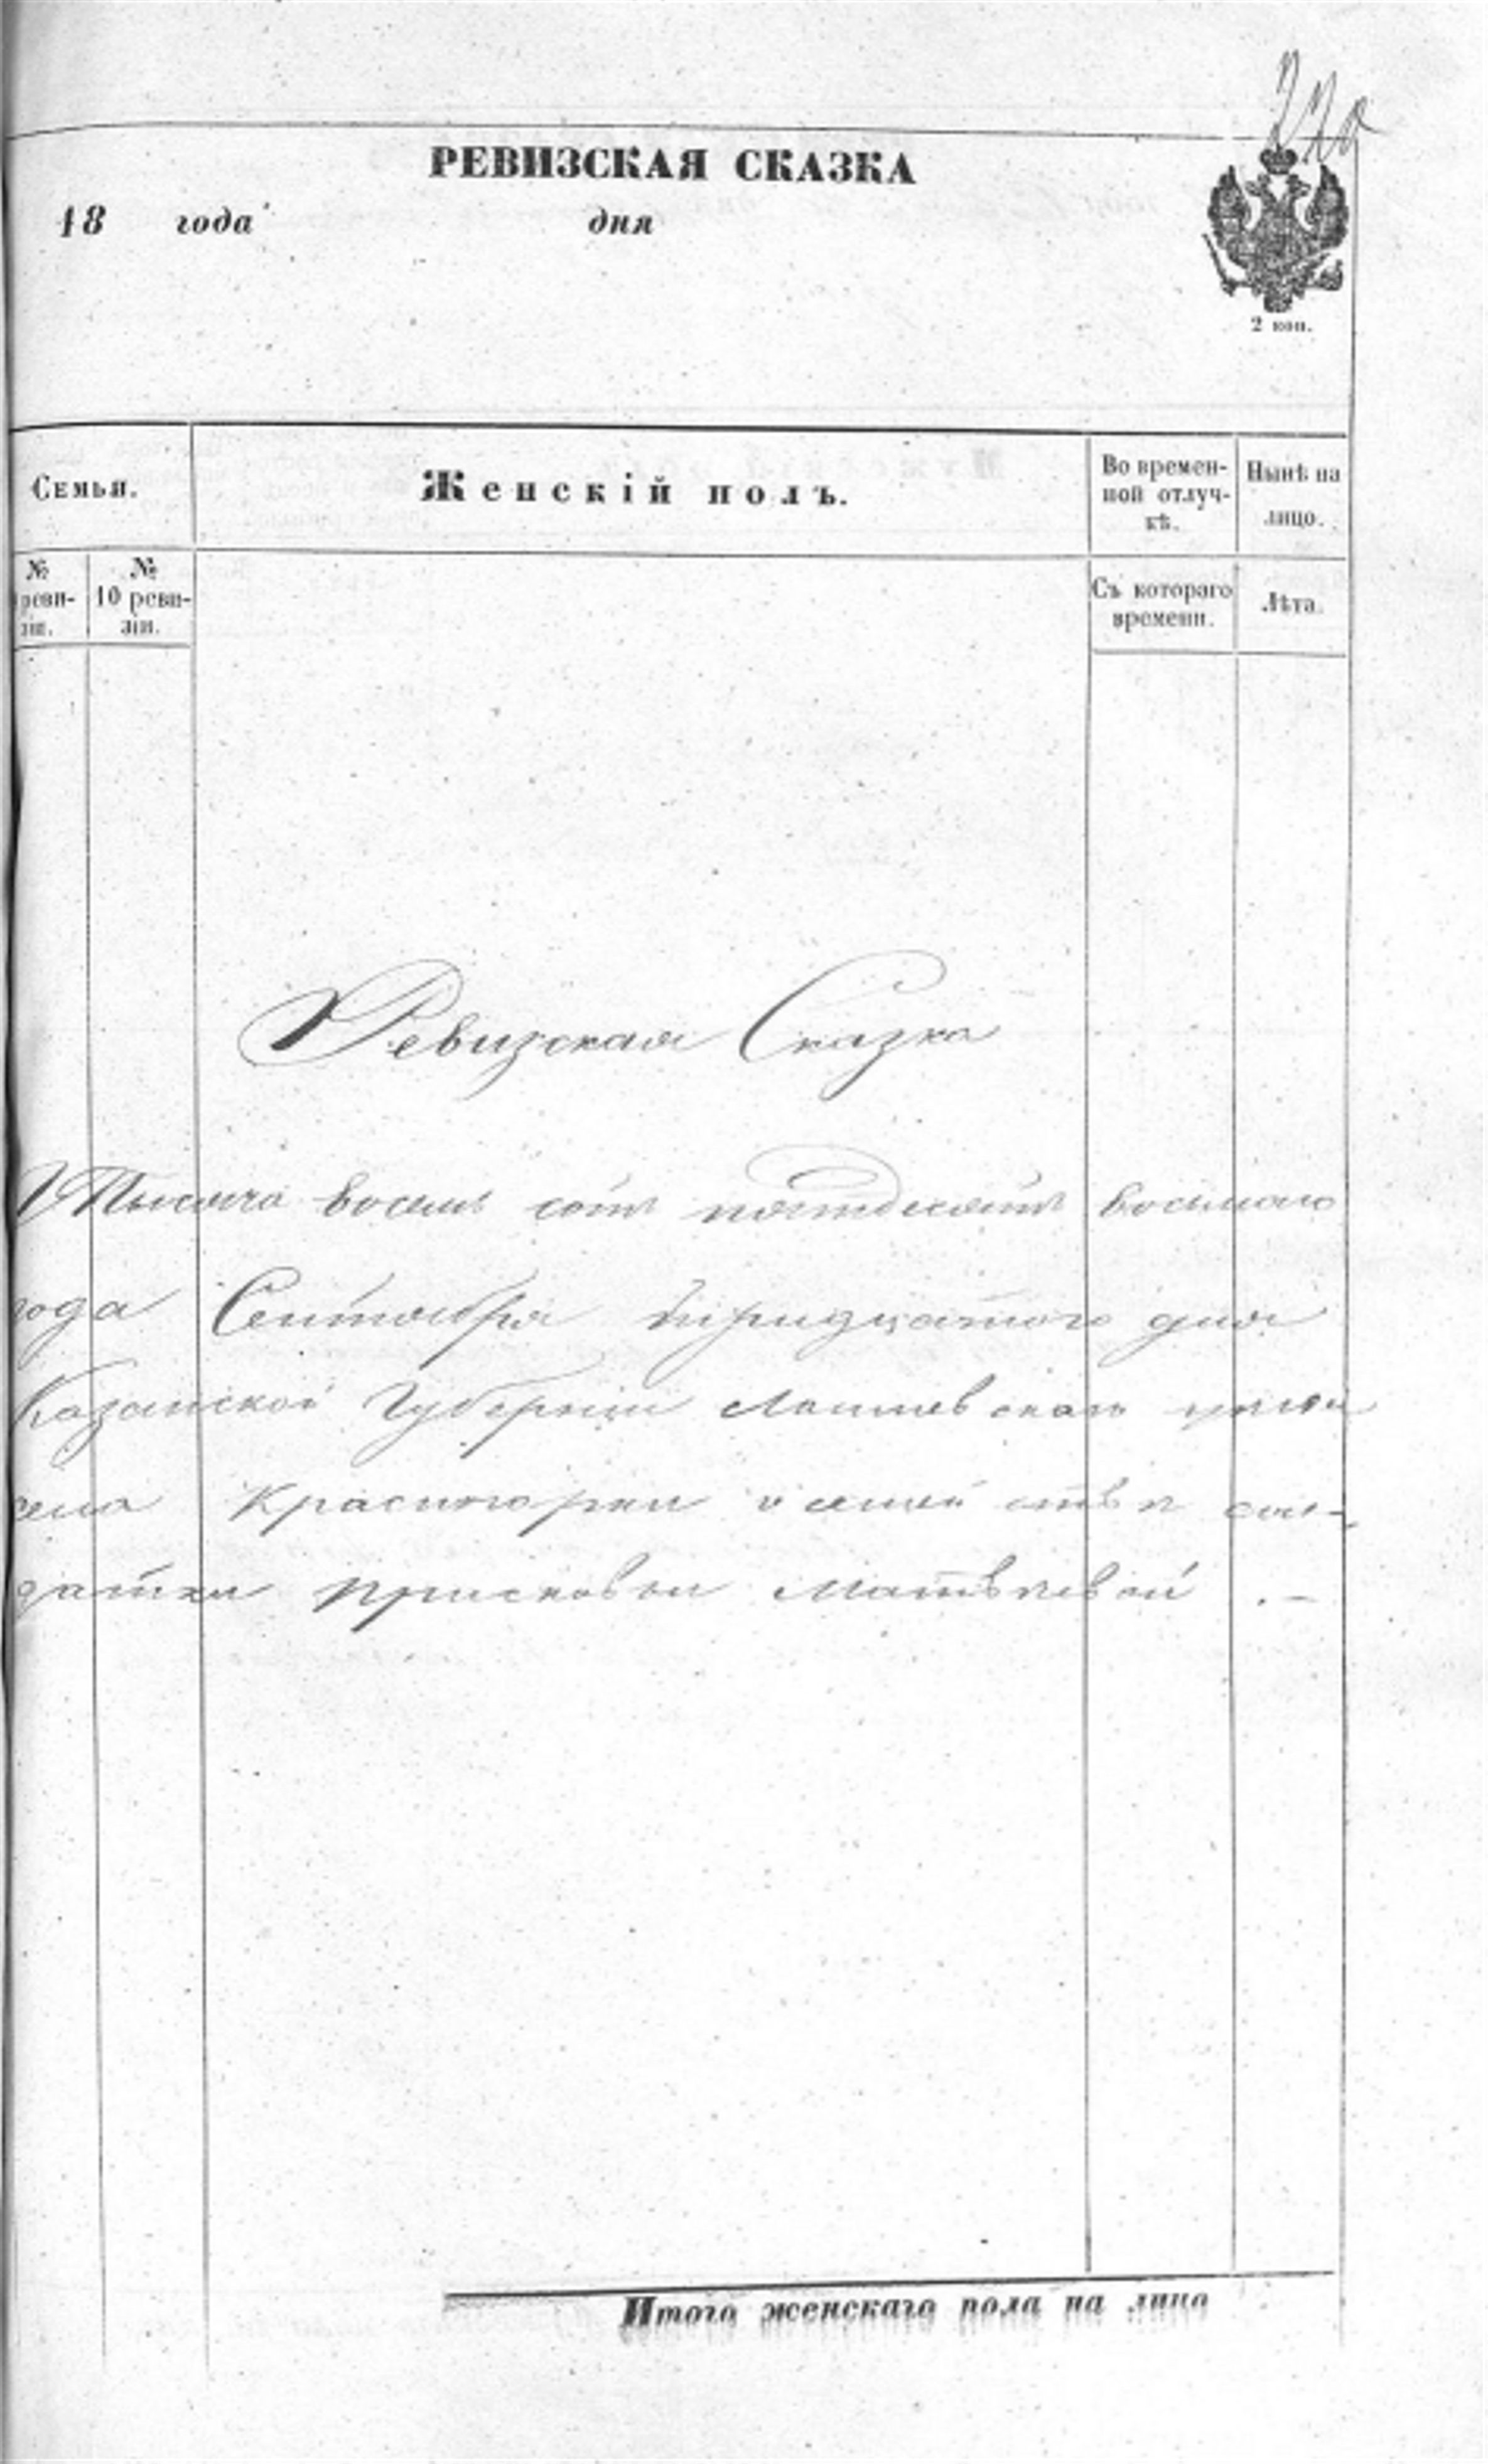 220
РЕВИЗСКАЯ СКАЗКА
18 года дня
2 коп.
Семья.
Женскій полъ.
Во времен-
ной отлуч-
кѣ.
Нынѣ на
лицо.
№
реви-
зіи.
№
10 реви-
зіи.
Съ котораго
времени.
Лѣта.
Ревизская Сказка
Тысяча восемь сотъ пятьдесятъ восьмаго
года Сентября тридцатаго дня
Казанской Губерніи Лаишевскаго уѣзда
села Красногорки о семействѣ сол-
датки Присковьи Матвѣевой .-
Итого женскаго пола на лицо